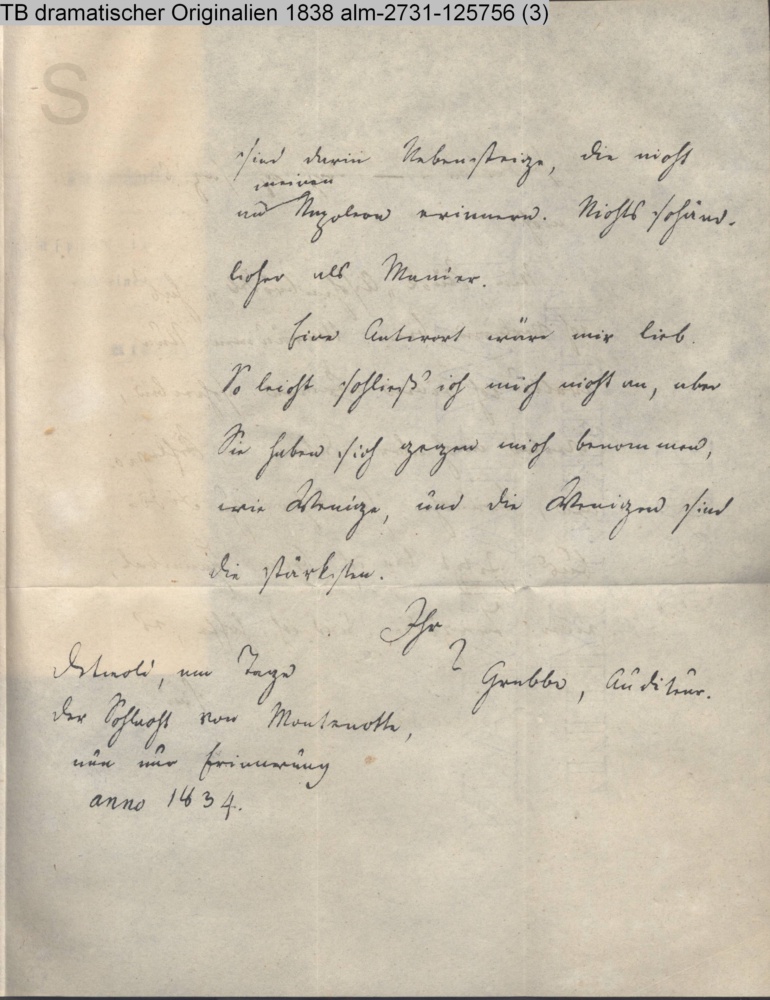 TB dramatischer Originalien 1838 alm-2731-125756 (3)
S
sind darin Nebensteige, die nicht
meinen
an Napoleon erinnern. Nichts schänd-
licher als Manier.
Eine Antwort wäre mir lieb.
So leicht schließ' ich mich nicht an, aber
Sie haben sich gegen mich benommen,
wie Wenige, und die Wenigen sind
die stärksten.
Ihr
Grabbe, Auditeur.
Detmold, am Tage
der Schlacht von Montenotte,
nun nur Erinnerung
anno 1834.